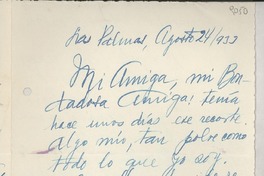 Las Palmas, Agosto 24/933
Mi Amiga, mi Bon-
dadosa Amiga: tenía
hace unos días ese recorte.
Algo mío, tan pobre como
todo lo que yo soy.